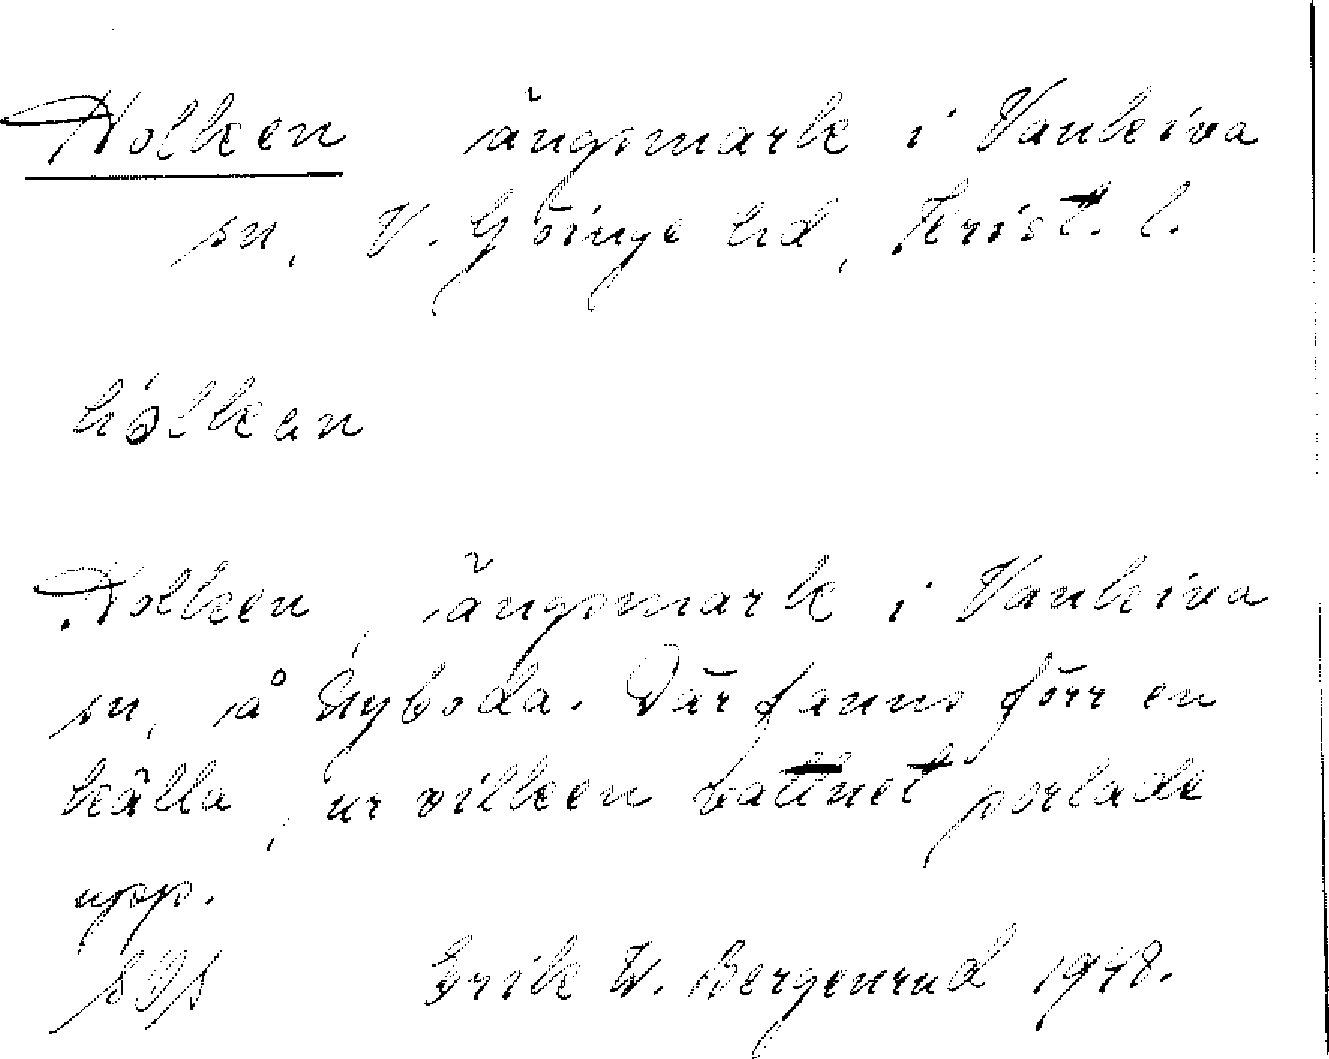 Holken ängsmark i Vankiva
sn, V. Göinge hd, Krist. l.
hólkan
Holken, ängsmark i Vankiva
sn, å Nyboda. Där fanns förr en
källa, ur vilken vattnet porlade
upp.
Erik W. Bergenrud 1948.